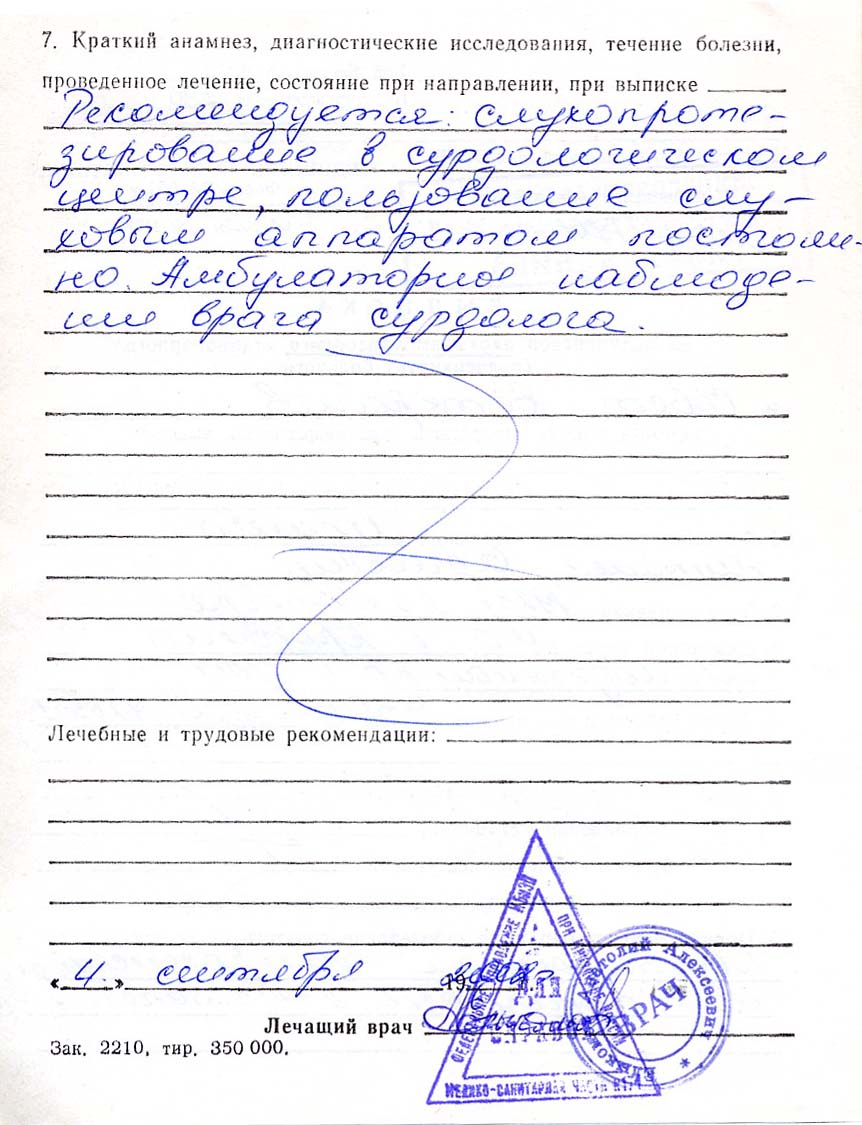 7. Краткий анамнез, диагностические исследования, течение болезни,
проведенное лечение, состояние при направлении, при выписке
Рекомендуется: слухопроте-
зирование в сурдологическом
центре, пользование слу-
ховым аппаратом постоян-
но. Амбулаторное наблюде-
ние врача сурдолога.
Лечебные и трудовые рекомендации:
« 4 » сентября
Лечащий врач
Зак. 2210, тир. 350 000.
ДЛЯ
МЕДИКО-САНИТАРНАЯ ЧАСТЬ
Анатолий Алексеевич
ВРАЧ